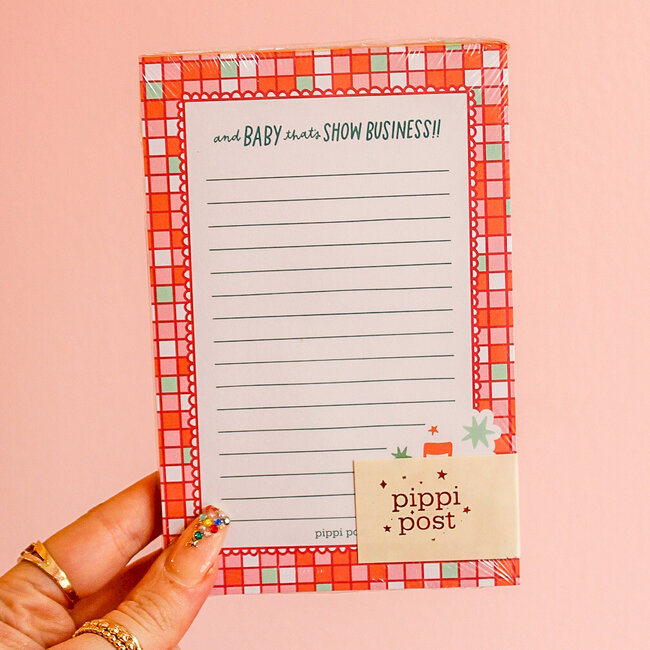 and BABY that's SHOW BUSINESS!!
pippi
post
pippi